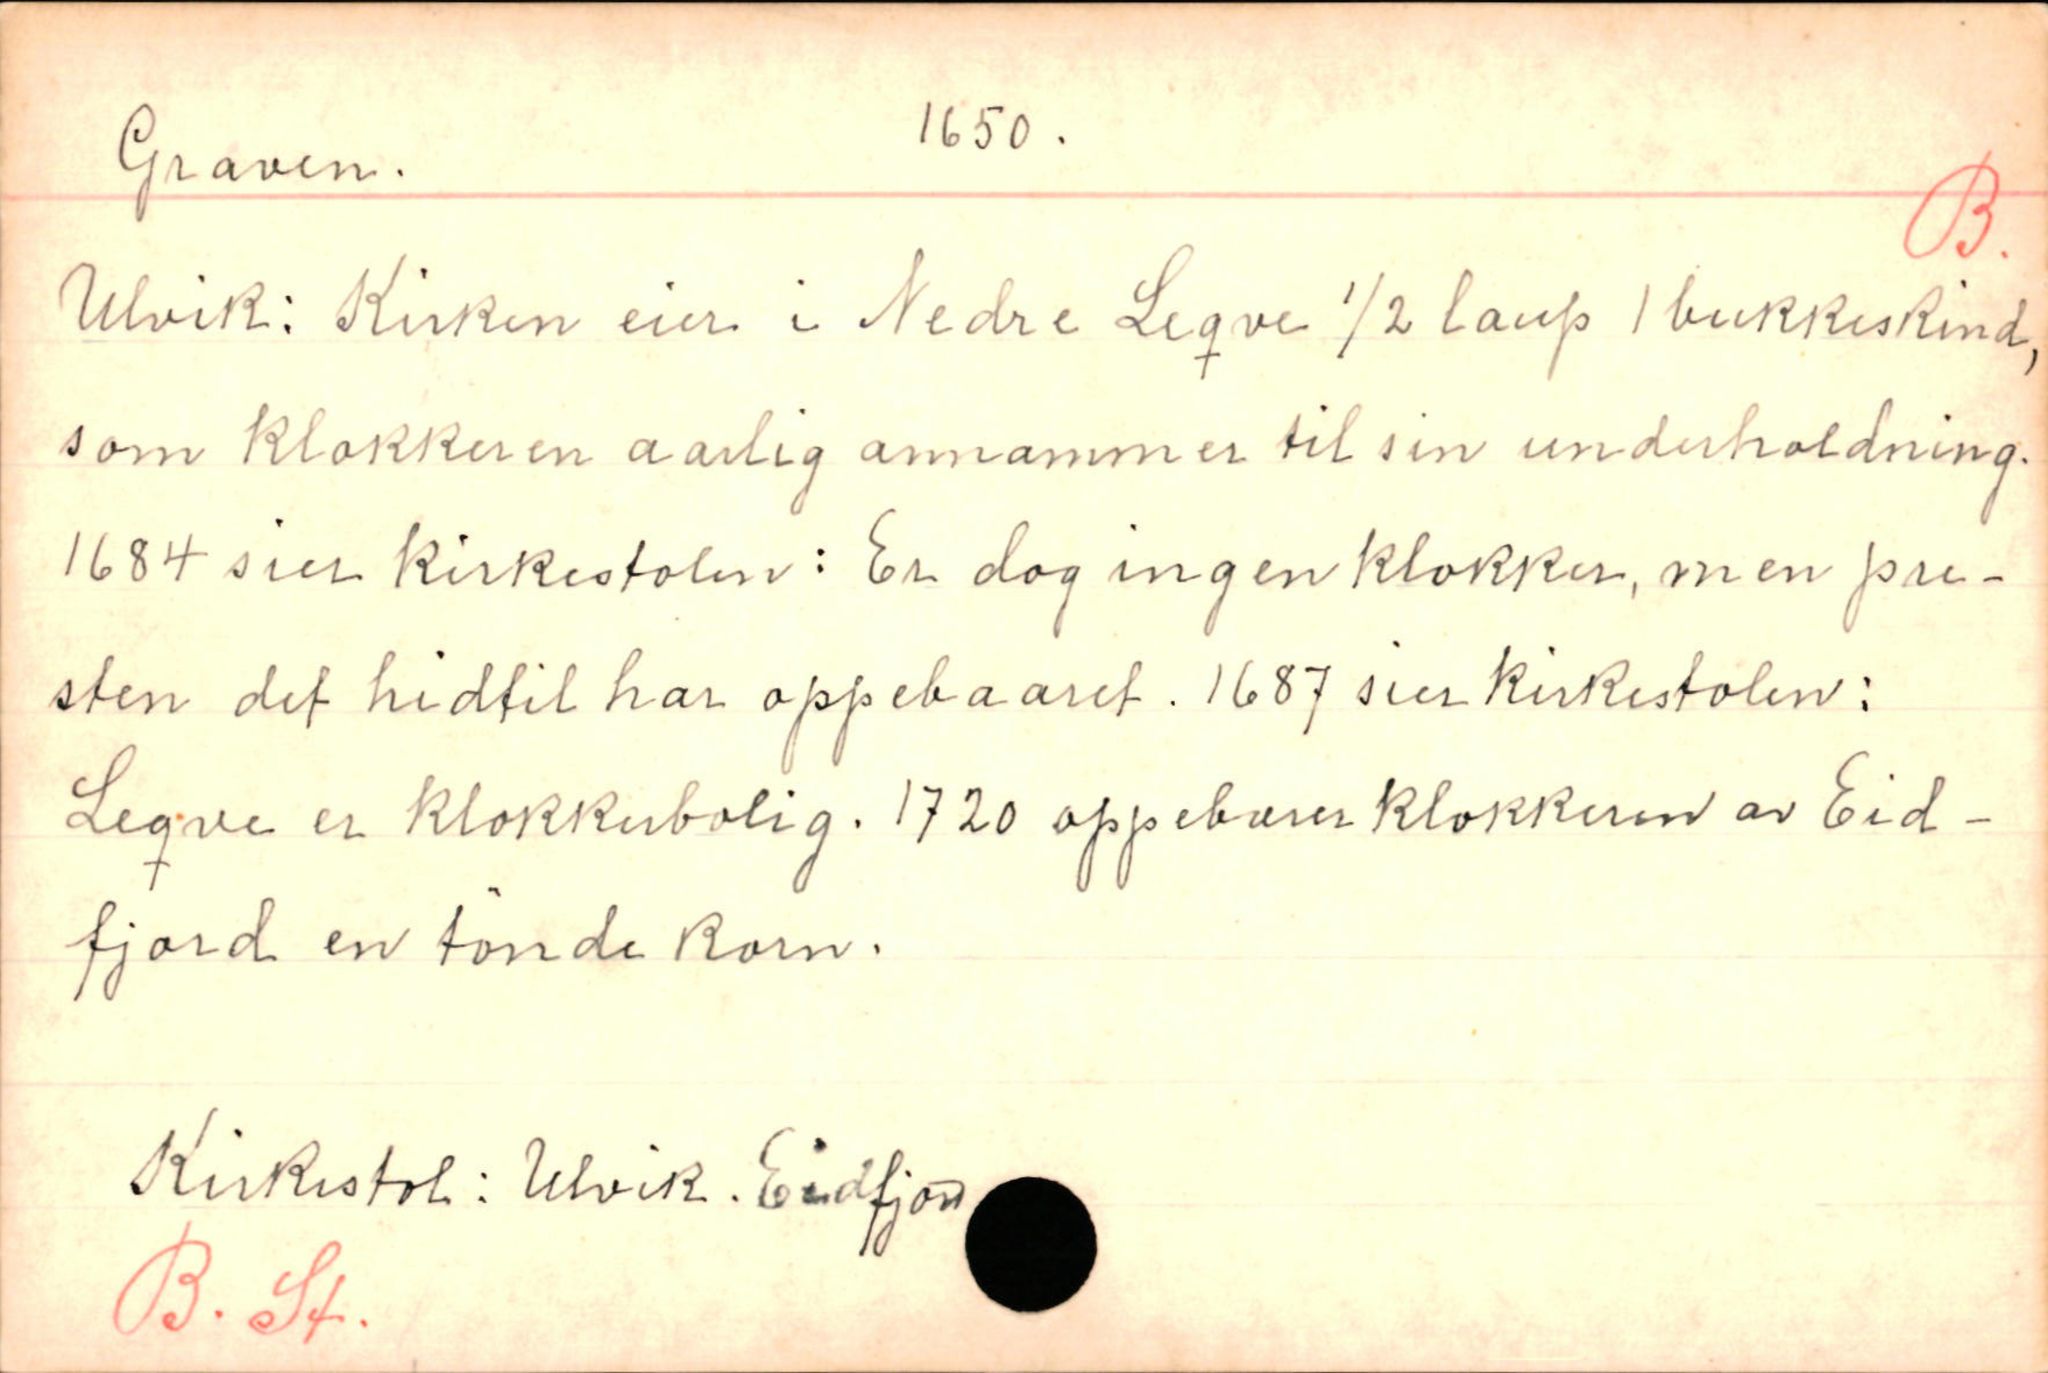 Graven.
1650.
B.
Ulvik: Kirken eier i Nedre Leqve 1/2 laup 1 bukkeskind,
som klokkeren aarlig annammer til sin underholdning.
1684 sier kirkestolen: Er dog ingen klokker, men pre-
sten det hidtil har oppebaaret. 1687 sier kirkestolen:
Leqve er klokkerbolig. 1720 oppebærer klokkeren av Eid-
fjord en tönde korn.
Kirkestol: Ulvik. Eidfjord
B. St.